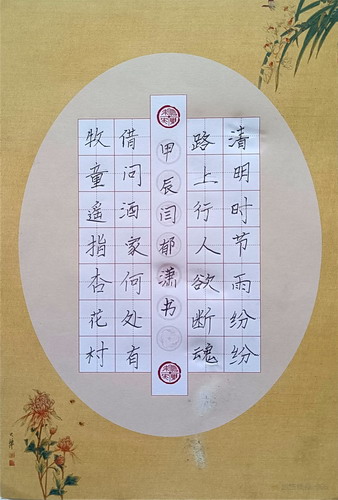 清明时节雨纷纷
路上行人欲断魂
借问酒家何处有
牧童遥指杏花村
甲辰闫郁潇书